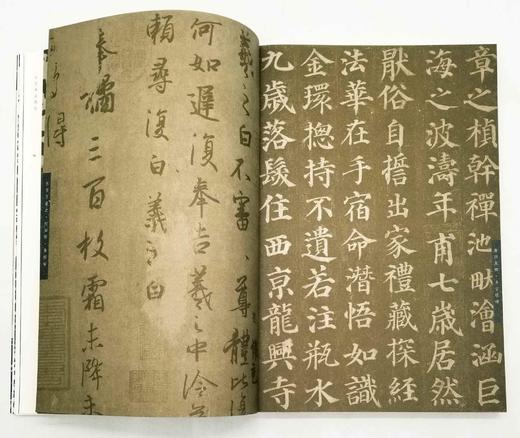 羲之白不審尊體比復
何如遲復奉告羲之中冷無
賴尋復白羲之白
奉橘三百枚霜未降未
可多得
章之楨幹禪池畎澮涵巨
海之波濤年甫七歲居然
猒俗自誓出家禮藏探經
法華在手宿命潛悟如識
金環揔持不遺若注瓶水
九歲落髮住西京龍興寺